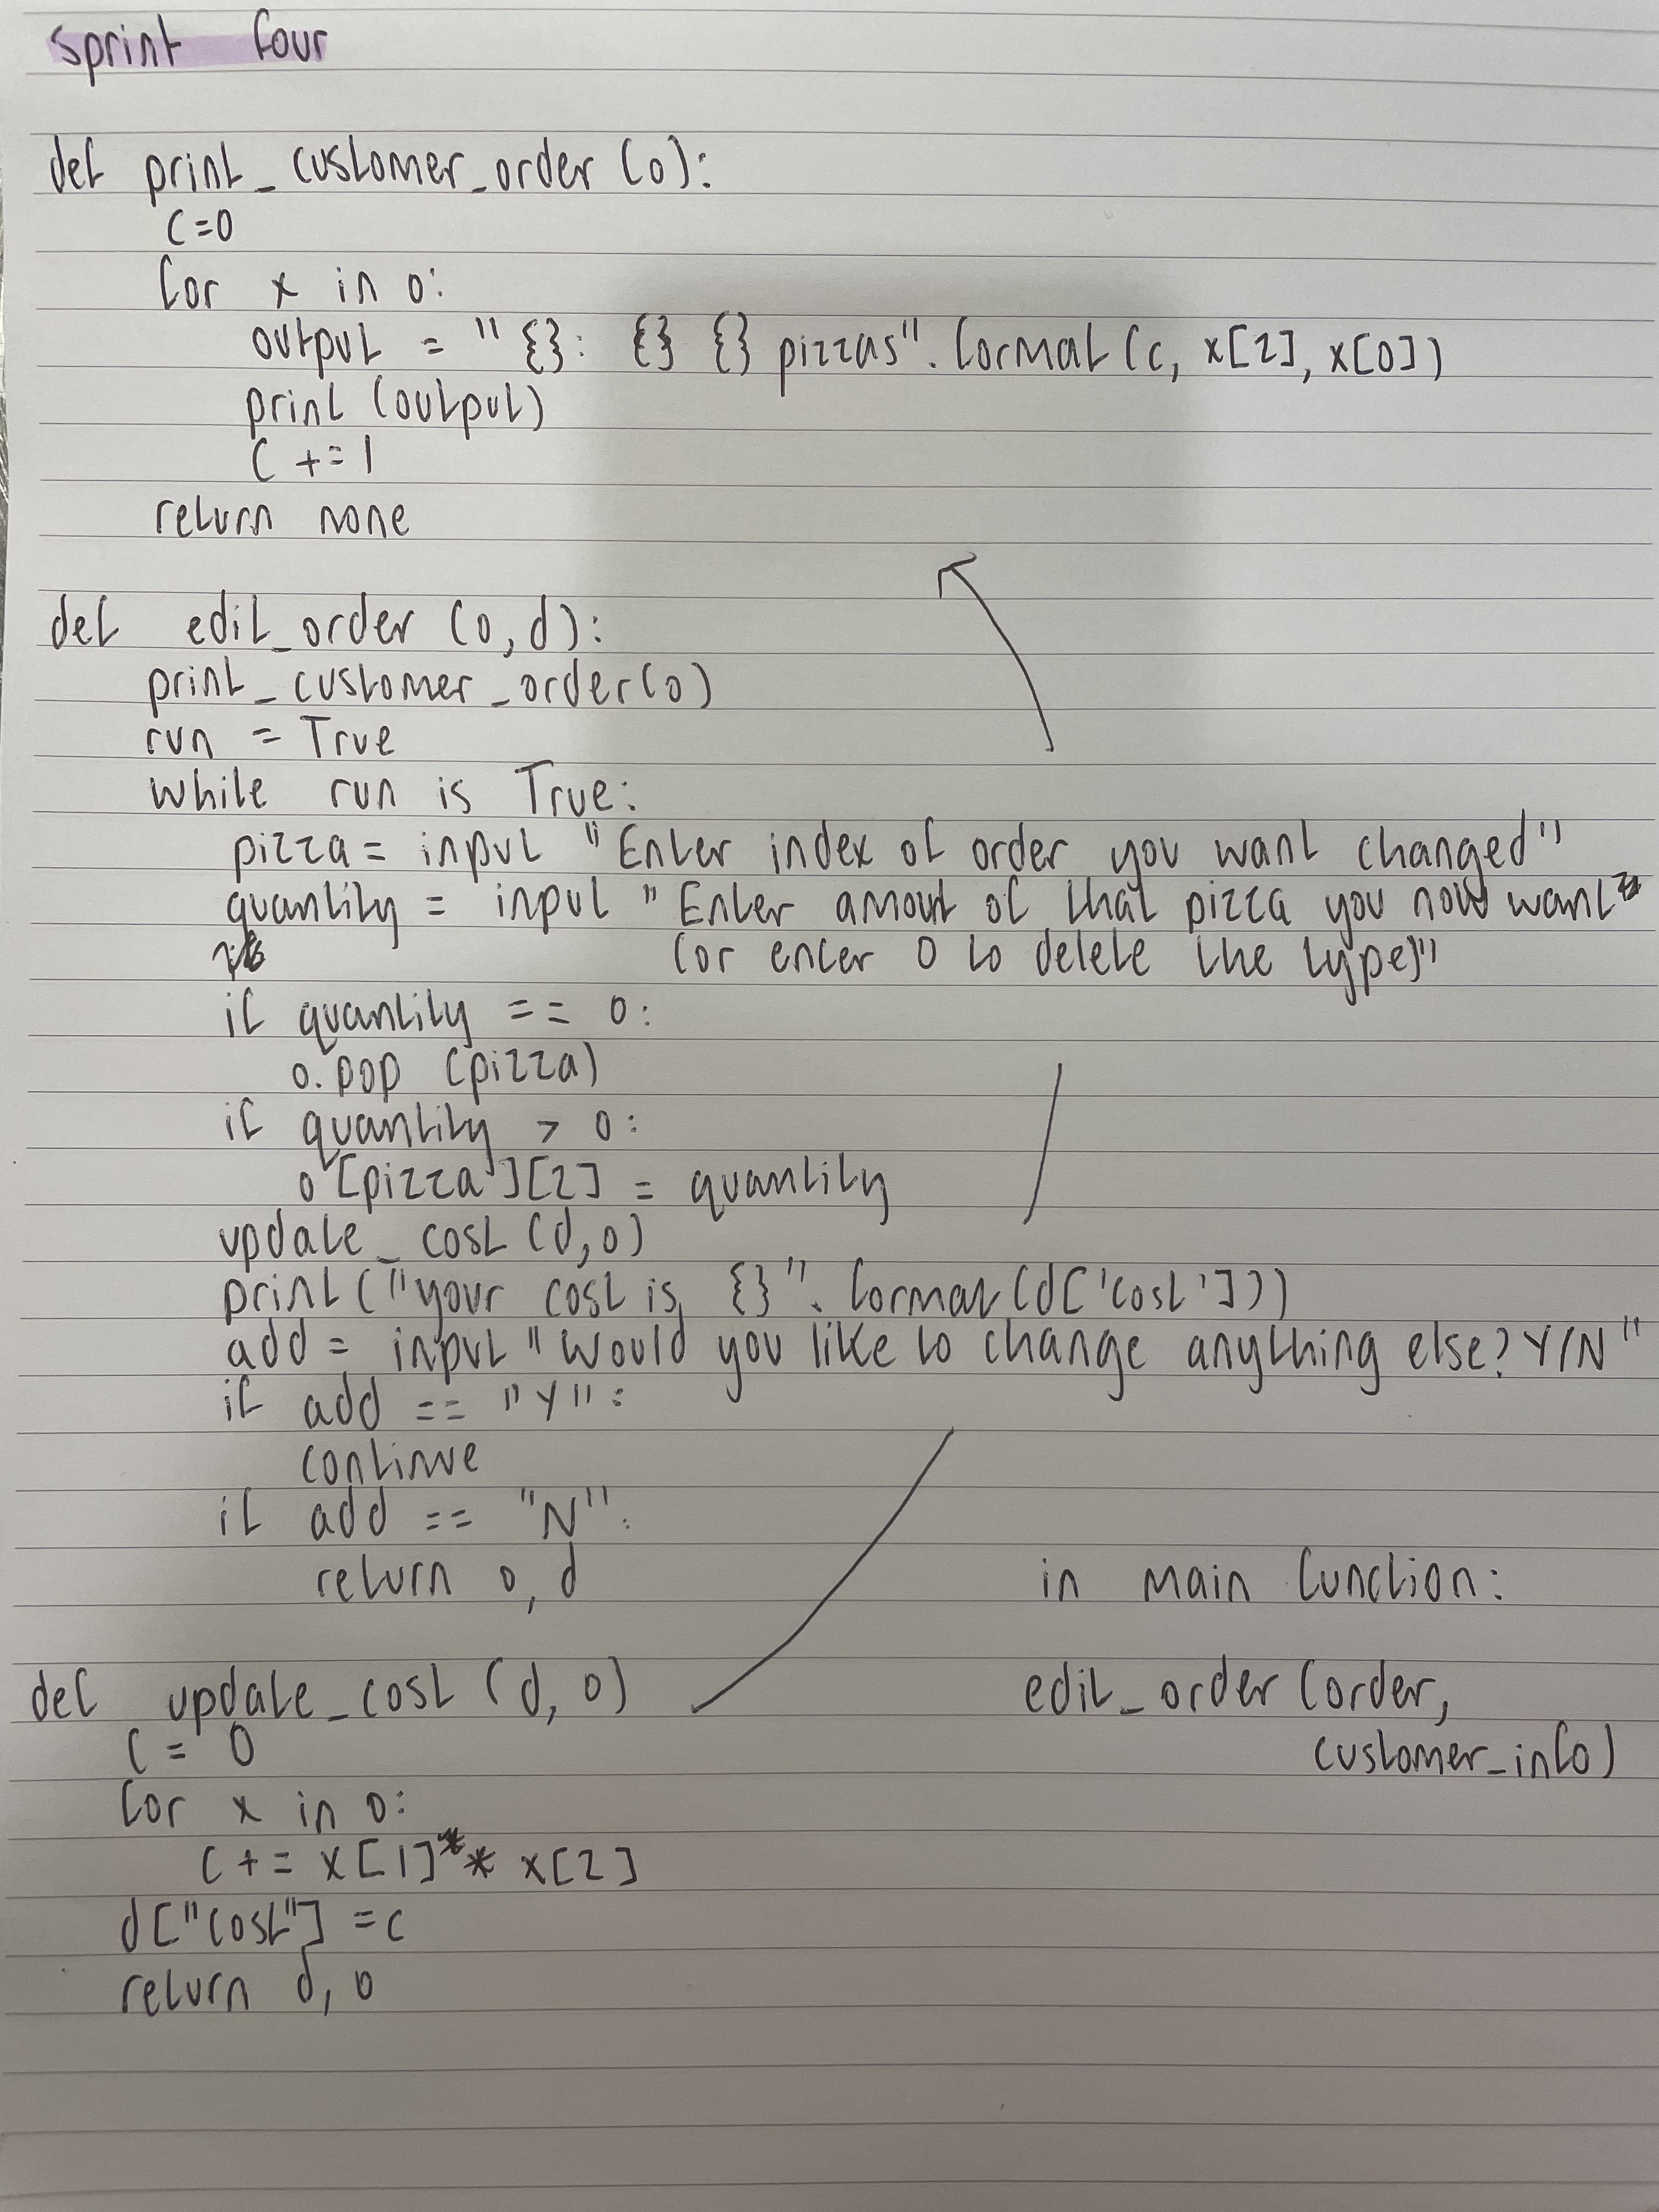 sprint four
def print_customer_order (o):
c=0
for x in o:
output = "{}: {} {} pizzas". format (c, x[2], x[0])
print (output)
c += 1
return none
def edit_order (o, d):
print_customer_order(o)
run = True
while run is True:
pizza = input "Enter index of order you want changed"
quantity = input "Enter amount of that pizza you now want
(or enter 0 to delete the type)"
if quantity == 0:
o.pop (pizza)
if quantity > 0:
o[pizza][2] = quantity
update_cost (d, o)
print("your cost is {}". format (d['cost']))
add = input "Would you like to change anything else? Y/N"
if add == "Y":
continue
if add == "N":
return o, d
def update_cost (d, o)
c = 0
for x in o:
c += x[1] * x[2]
d["cost"] = c
return d, o
in main function:
edit_order (order,
customer_info)